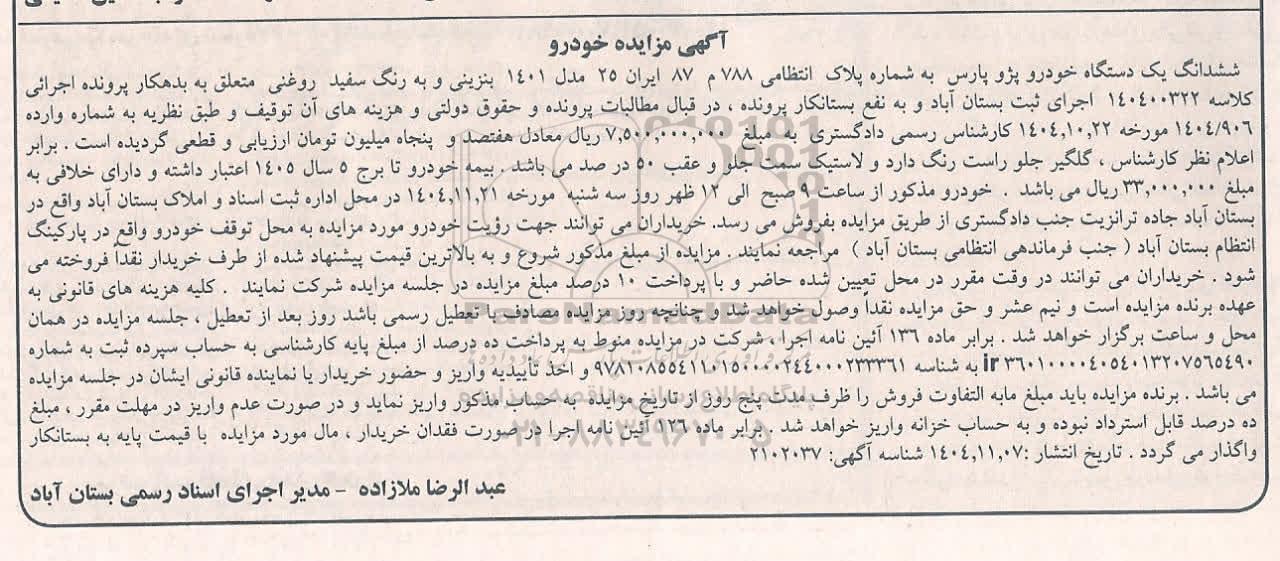 آگهی مزایده خودرو
ششدانگ یک دستگاه خودرو پژو پارس به شماره پلاک انتظامی ۷۸۸ م ۸۷ ایران ۲۵ مدل ۱۴۰۱ بنزینی و به رنگ سفید روغنی متعلق به بدهکار پرونده اجرائی
کلاسه ۱۴۰۴۰۰۳۲۲ اجرای ثبت بستان آباد و به نفع بستانکار پرونده ، در قبال مطالبات پرونده و حقوق دولتی و هزینه های آن توقیف و طبق نظریه به شماره وارده
۱۴۰۴/۹۰۶ مورخه ۱۴۰۴,۱۰,۲۲ کارشناس رسمی دادگستری به مبلغ ۷,۵۰۰,۰۰۰,۰۰۰ ریال معادل هفتصد و پنجاه میلیون تومان ارزیابی و قطعی گردیده است . برابر
اعلام نظر کارشناس ، گلگیر جلو راست رنگ دارد و لاستیک سمت جلو و عقب ۵۰ در صد می باشد . بیمه خودرو تا برج ۵ سال ۱۴۰۵ اعتبار داشته و دارای خلافی به
مبلغ ۳۳,۰۰۰,۰۰۰ ریال می باشد . خودرو مذکور از ساعت ۹ صبح الی ۱۲ ظهر روز سه شنبه مورخه ۱۴۰۴,۱۱,۲۱ در محل اداره ثبت اسناد و املاک بستان آباد واقع در
بستان آباد جاده ترانزیت جنب دادگستری از طریق مزایده بفروش می رسد. خریداران می توانند جهت رؤیت خودرو مورد مزایده به محل توقف خودرو واقع در پارکینگ
انتظام بستان آباد ( جنب فرماندهی انتظامی بستان آباد ) مراجعه نمایند . مزایده از مبلغ مذکور شروع و به بالاترین قیمت پیشنهاد شده از طرف خریدار نقداً فروخته می
شود . خریداران می توانند در وقت مقرر در محل تعیین شده حاضر و با پرداخت ۱۰ درصد مبلغ مزایده در جلسه مزایده شرکت نمایند . کلیه هزینه های قانونی به
عهده برنده مزایده است و نیم عشر و حق مزایده نقداً وصول خواهد شد و چنانچه روز مزایده مصادف با تعطیل رسمی باشد روز بعد از تعطیل ، جلسه مزایده در همان
محل و ساعت برگزار خواهد شد . برابر ماده ۱۳۶ آئین نامه اجرا ، شرکت در مزایده منوط به پرداخت ده درصد از مبلغ پایه کارشناسی به حساب سپرده ثبت به شماره
ir ۳۶۰۱۰۰۰۰۴۰۵۴۰۱۳۲۰۷۵۶۵۴۹۰ به شناسه ۹۷۸۱۰۸۵۵۴۱۱۰۱۵۰۰۰۰۰۲۴۴۰۰۰۲۳۳۳۶۱ و اخذ تأییدیه واریز و حضور خریدار یا نماینده قانونی ایشان در جلسه مزایده
می باشد . برنده مزایده باید مبلغ مابه التفاوت فروش را ظرف مدت پنج روز از تاریخ مزایده به حساب مذکور واریز نماید و در صورت عدم واریز در مهلت مقرر ، مبلغ
ده درصد قابل استرداد نبوده و به حساب خزانه واریز خواهد شد . برابر ماده ۱۲۶ آئین نامه اجرا در صورت فقدان خریدار ، مال مورد مزایده با قیمت پایه به بستانکار
واگذار می گردد . تاریخ انتشار :۱۴۰۴,۱۱,۰۷ شناسه آگهی: ۲۱۰۲۰۳۷
عبد الرضا ملازاده - مدیر اجرای اسناد رسمی بستان آباد
ParsNamadData